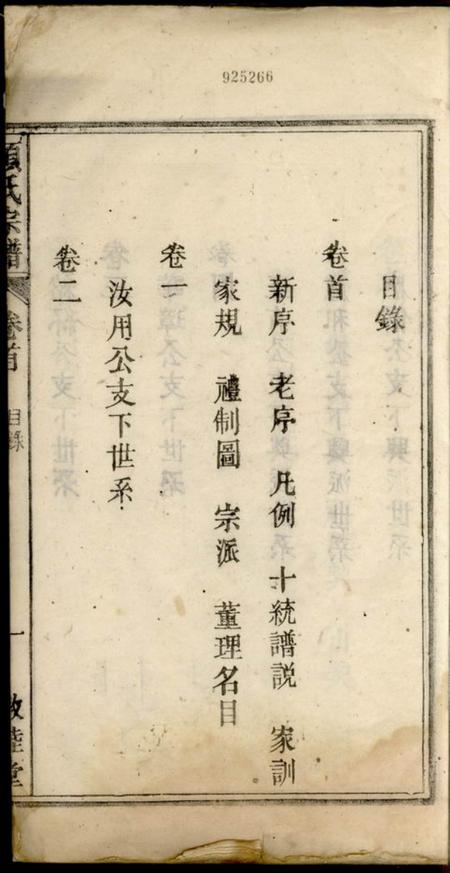 925266
目錄
卷首
新序 老序 凡例 十統譜説 家訓
家規 禮制圖 宗派 董理名目
卷一
汝用公支下世系
卷二
氏宗譜
卷首 目錄 一 睦堂